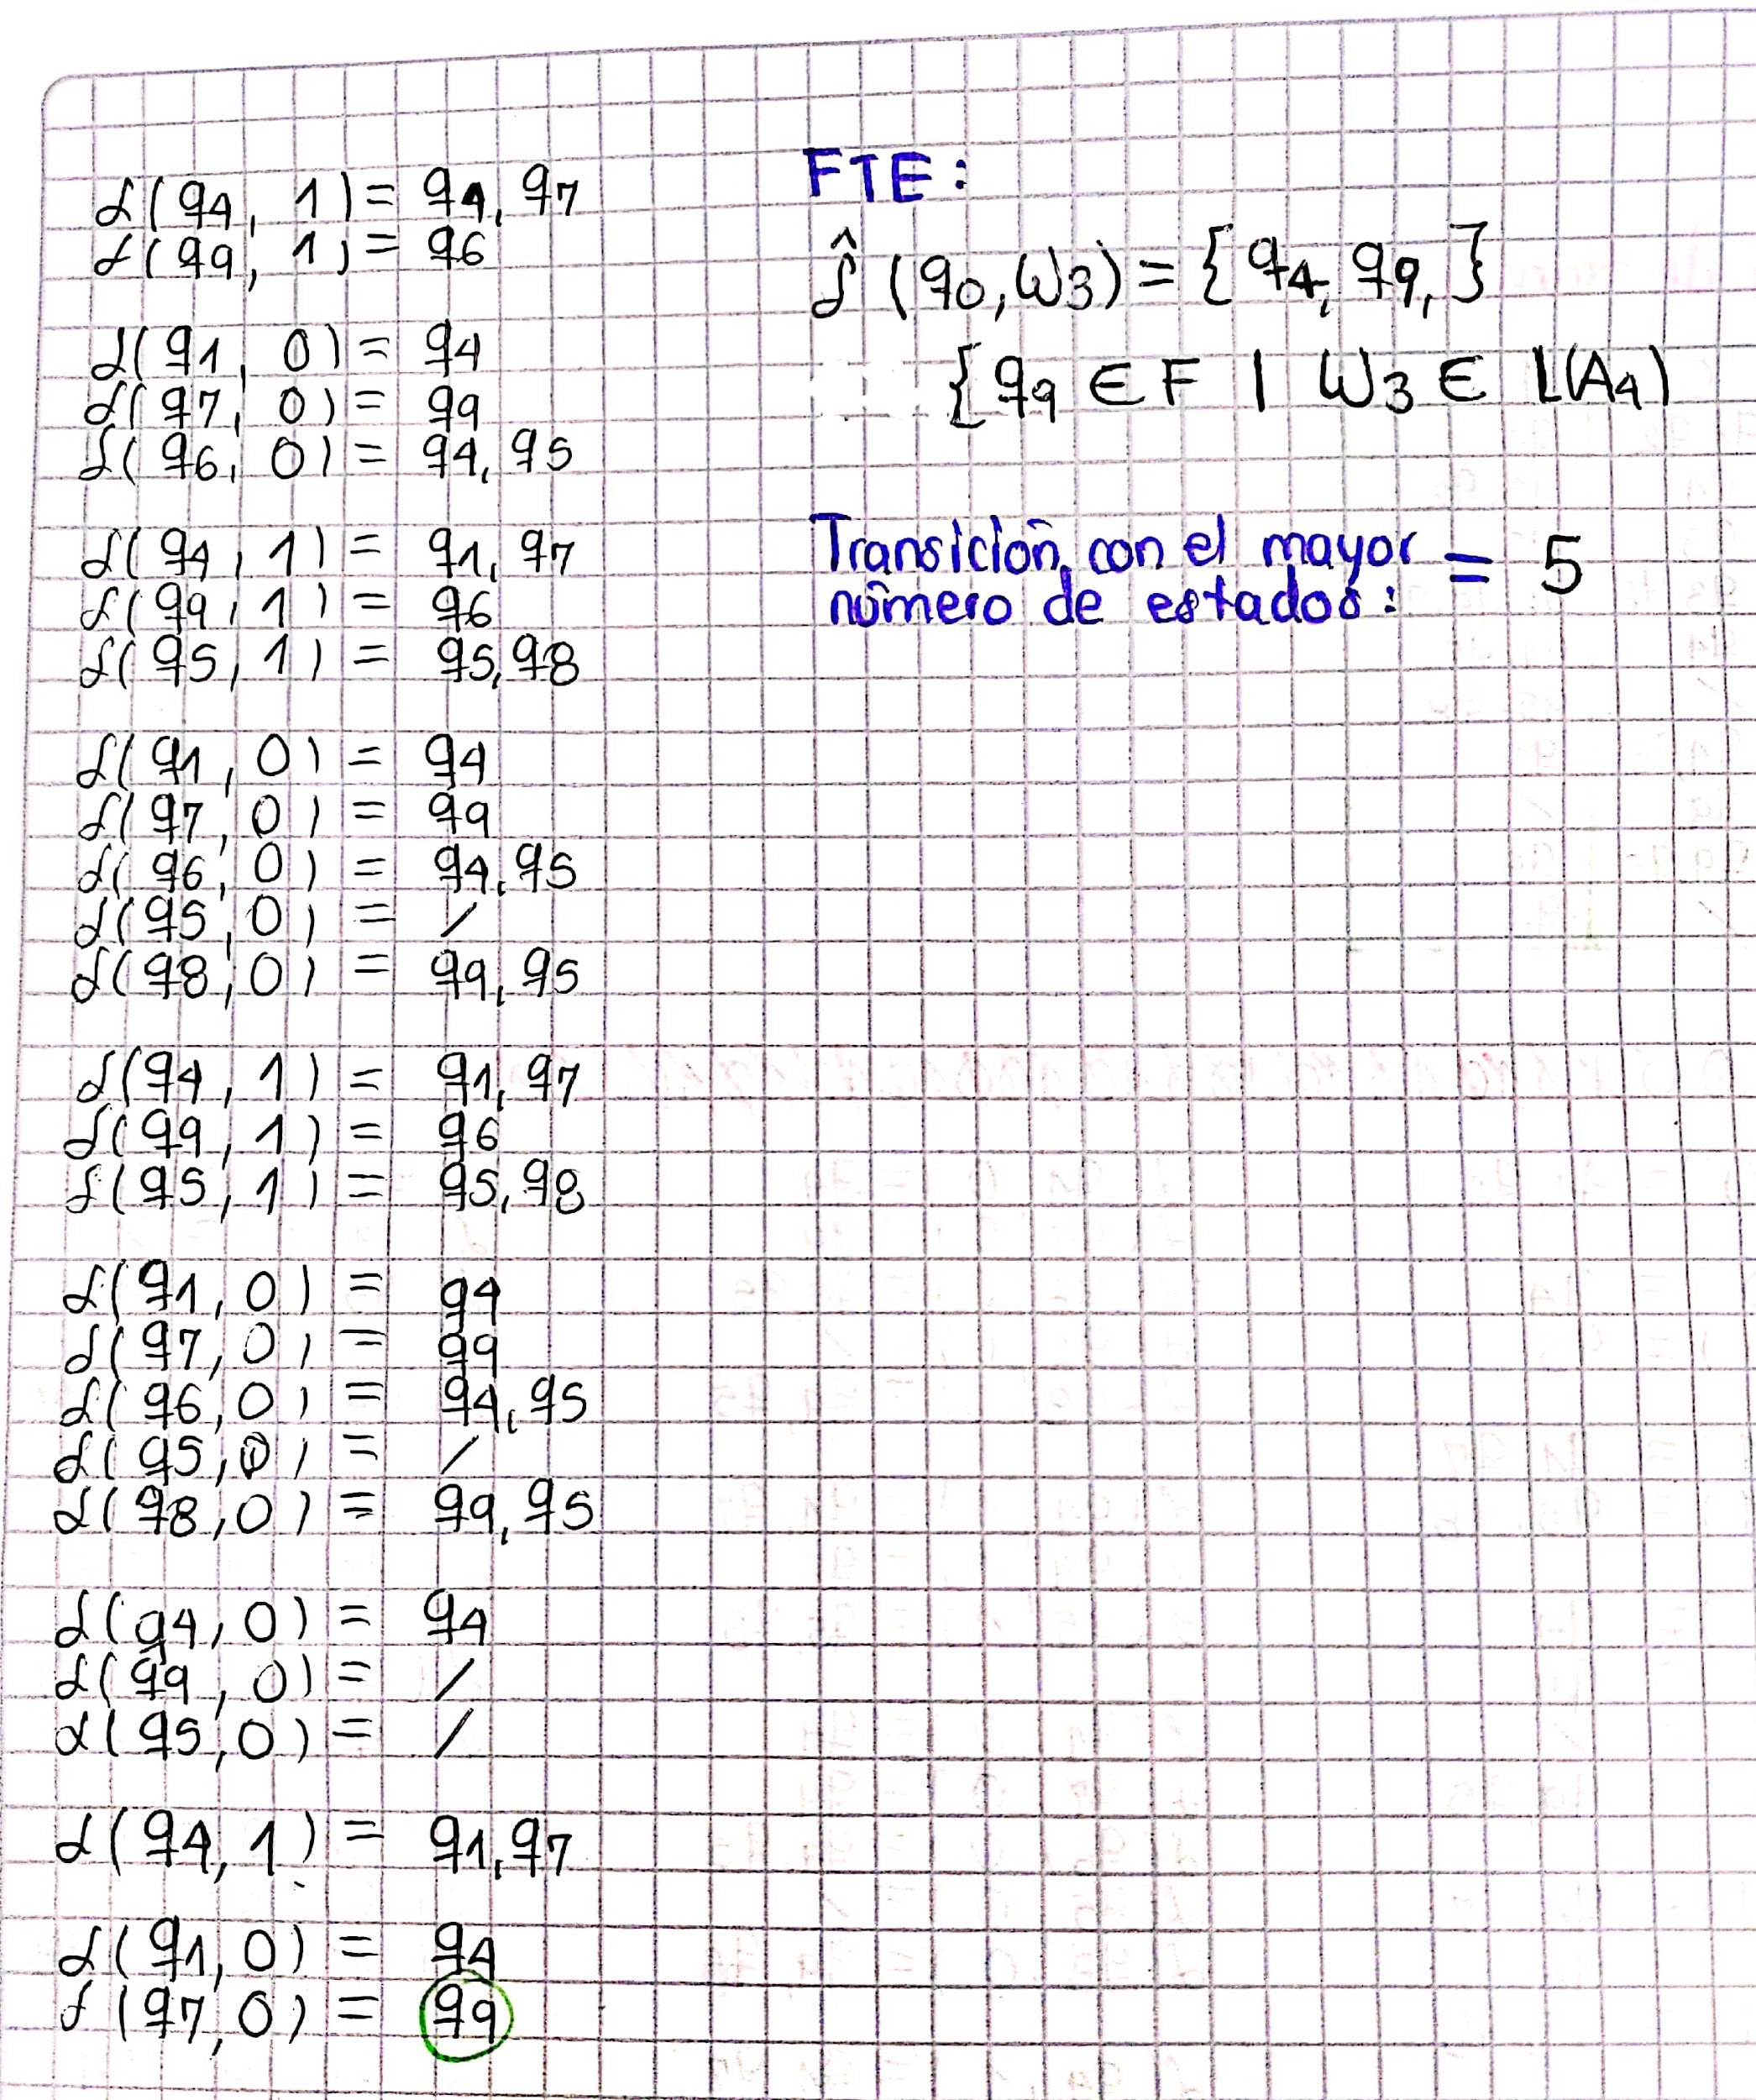 δ(q4, 1) = q4, q7
δ(q9, 1) = q6
δ(q1, 0) = q4
δ(q7, 0) = q9
δ(q6, 0) = q4, q5
δ(q4, 1) = q1, q7
δ(q9, 1) = q6
δ(q5, 1) = q5, q8
δ(q1, 0) = q4
δ(q7, 0) = q9
δ(q6, 0) = q4, q5
δ(q5, 0) = /
δ(q8, 0) = q9, q5
δ(q4, 1) = q1, q7
δ(q9, 1) = q6
δ(q5, 1) = q5, q8
δ(q1, 0) = q4
δ(q7, 0) = q9
δ(q6, 0) = q4, q5
δ(q5, 0) = /
δ(q8, 0) = q9, q5
δ(q4, 0) = q4
δ(q9, 0) = /
δ(q5, 0) = /
δ(q4, 1) = q1, q7
δ(q1, 0) = q4
δ(q7, 0) = q9
FTE:
δ̂ (q0, ω3) = {q4, q9, }
{q9 ∈ F | ω3 ∈ L(A4)
Transición con el mayor = 5
número de estados: